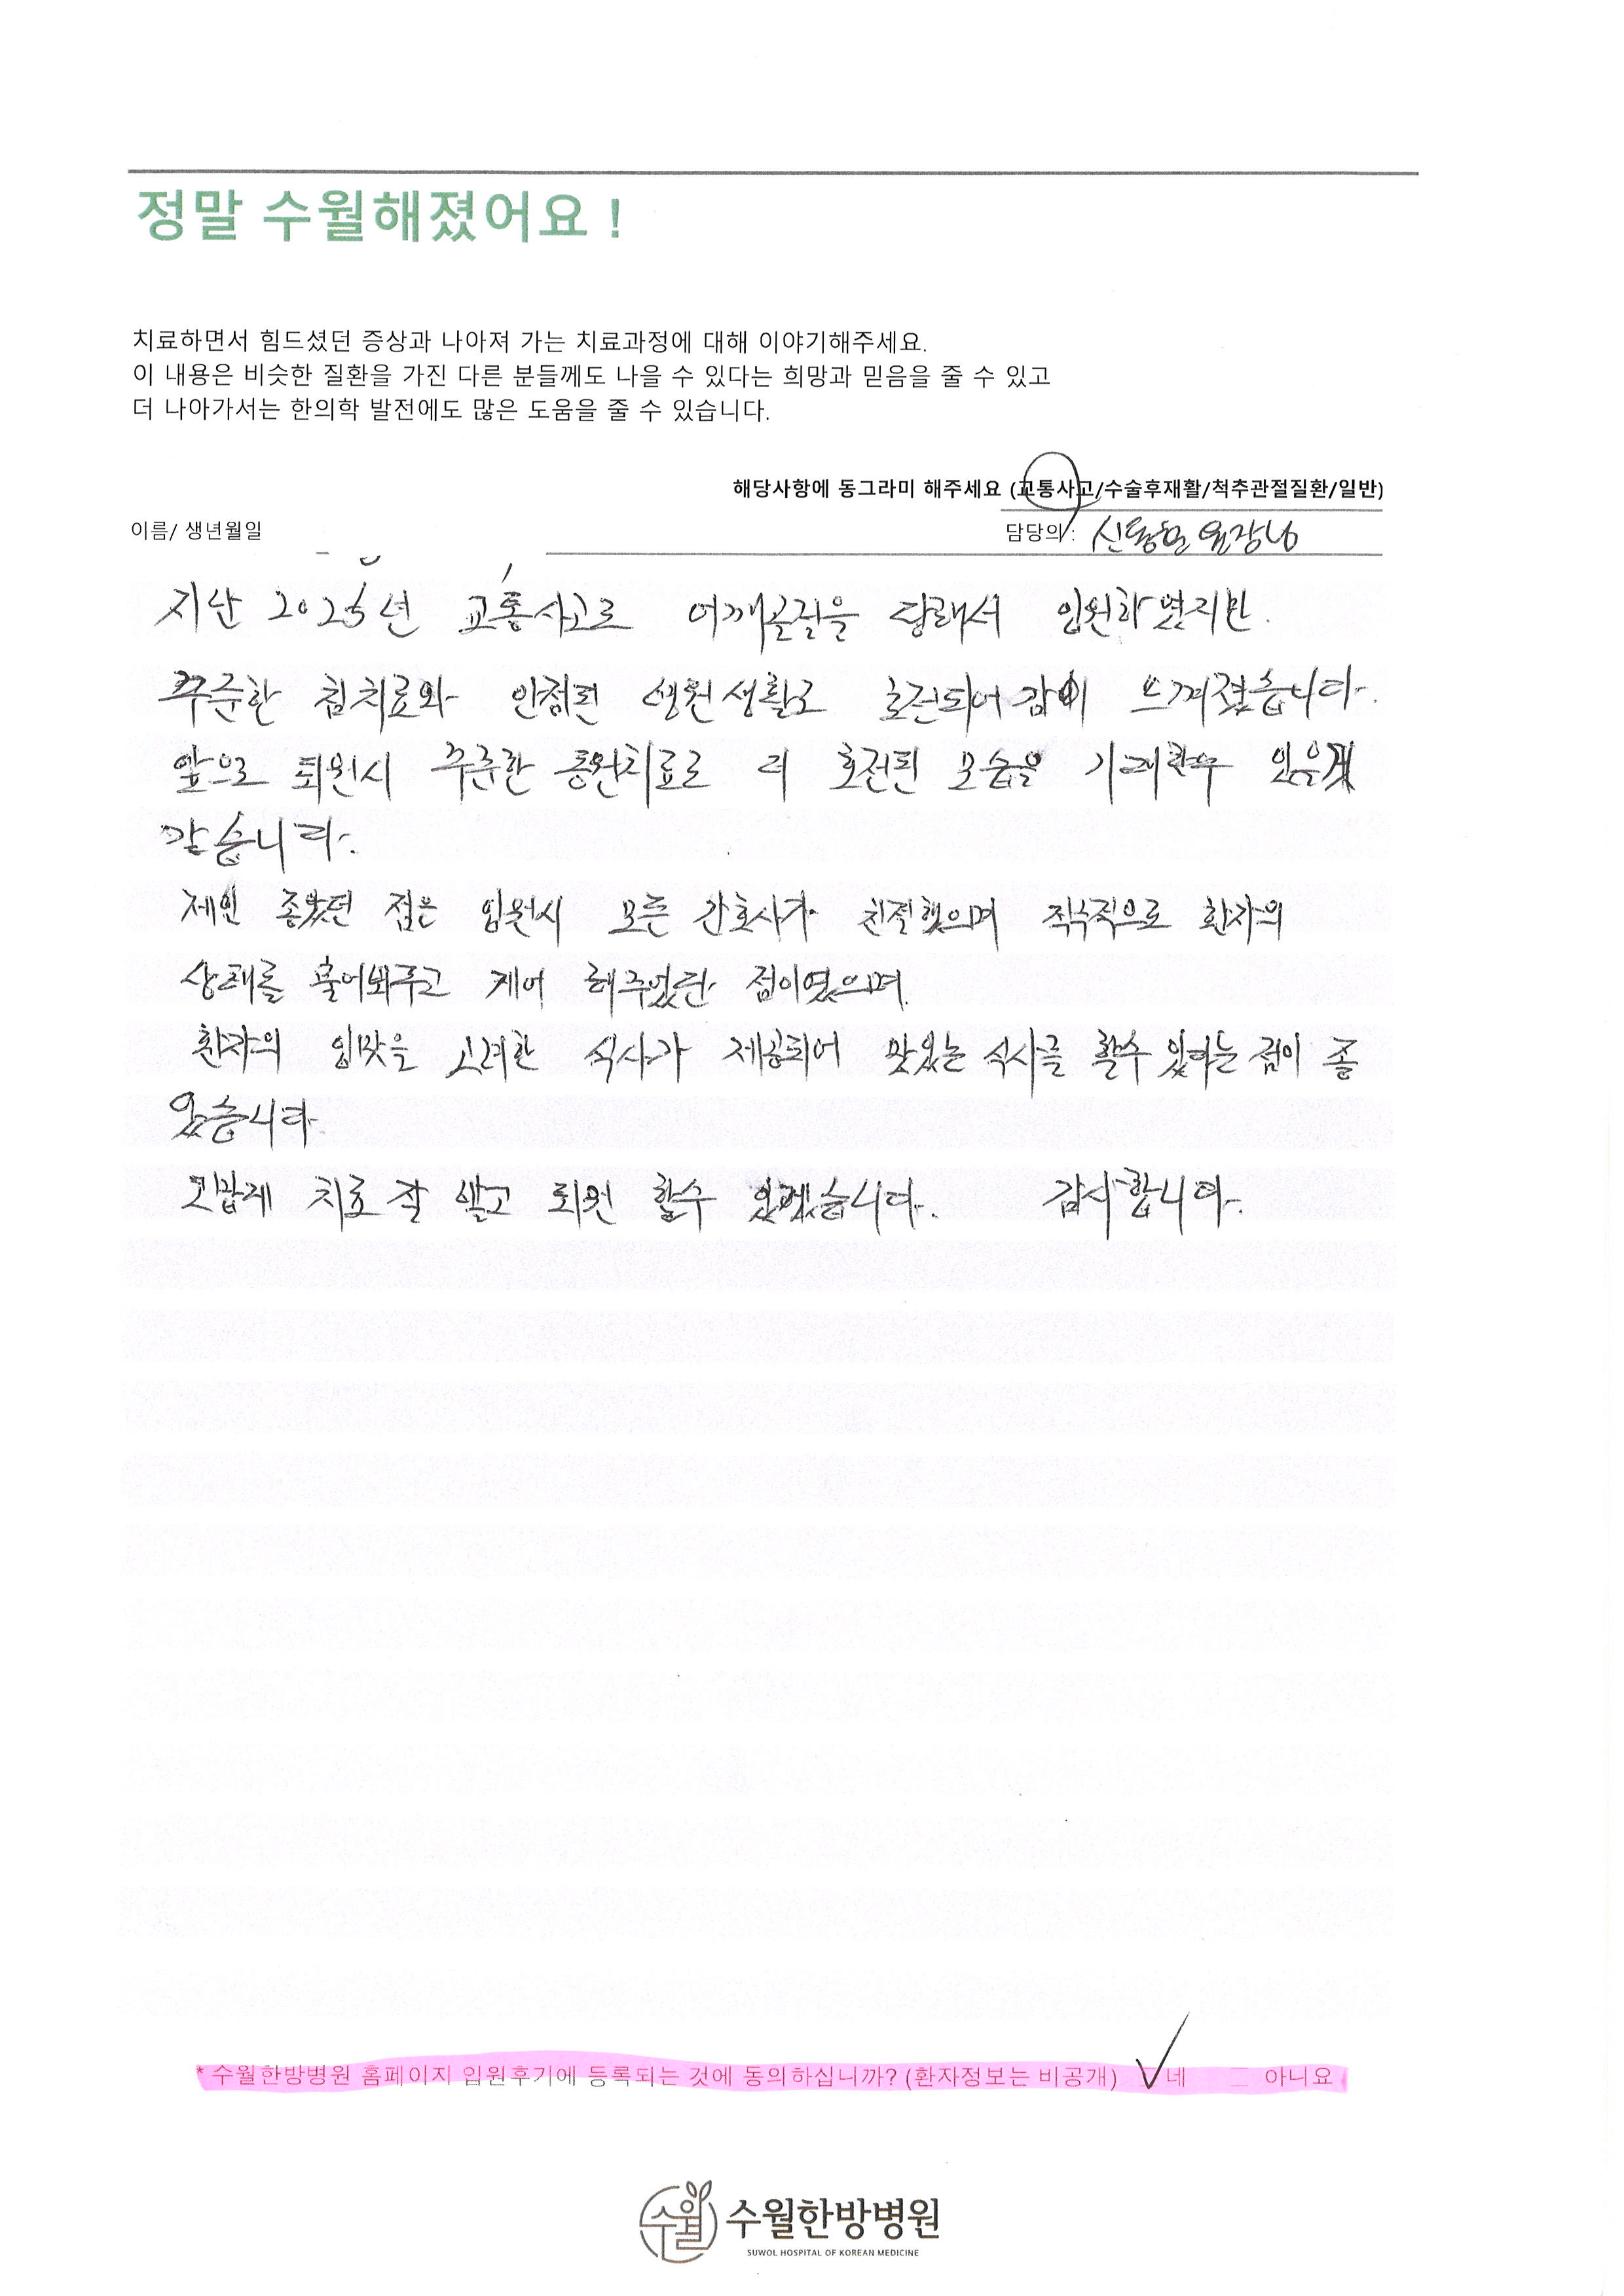 정말 수월해졌어요 !
치료하면서 힘드셨던 증상과 나아져 가는 치료과정에 대해 이야기해주세요.
이 내용은 비슷한 질환을 가진 다른 분들께도 나을 수 있다는 희망과 믿음을 줄 수 있고
더 나아가서는 한의학 발전에도 많은 도움을 줄 수 있습니다.
해당사항에 동그라미 해주세요 (교통사고/수술후재활/척추관절질환/일반)
이름/ 생년월일 담당의 : 원장님
지난 2025년 교통사고로 어깨골절을 당해서 입원하였지만.
꾸준한 침치료와 안정된 병원생활로 호전되어감이 느껴졌습니다.
앞으로 퇴원시 꾸준한 통원치료로 더 호전된 모습을 기대할수 있을거
같습니다.
제일 좋았던 점은 입원시 모든 간호사가 친절했으며 적극적으로 환자의
상태를 물어봐주고 케어 해주었던 점이였으며.
환자의 입맛을 고려한 식사가 제공되어 맛있는 식사를 할수 있다는 점이 좋
았습니다.
치료 잘 받고 퇴원 할수 있겠습니다. 감사합니다.
* 수월한방병원 홈페이지 입원후기에 등록되는 것에 동의하십니까? (환자정보는 비공개) 네 아니요
수월 수월한방병원
SUWOL HOSPITAL OF KOREAN MEDICINE